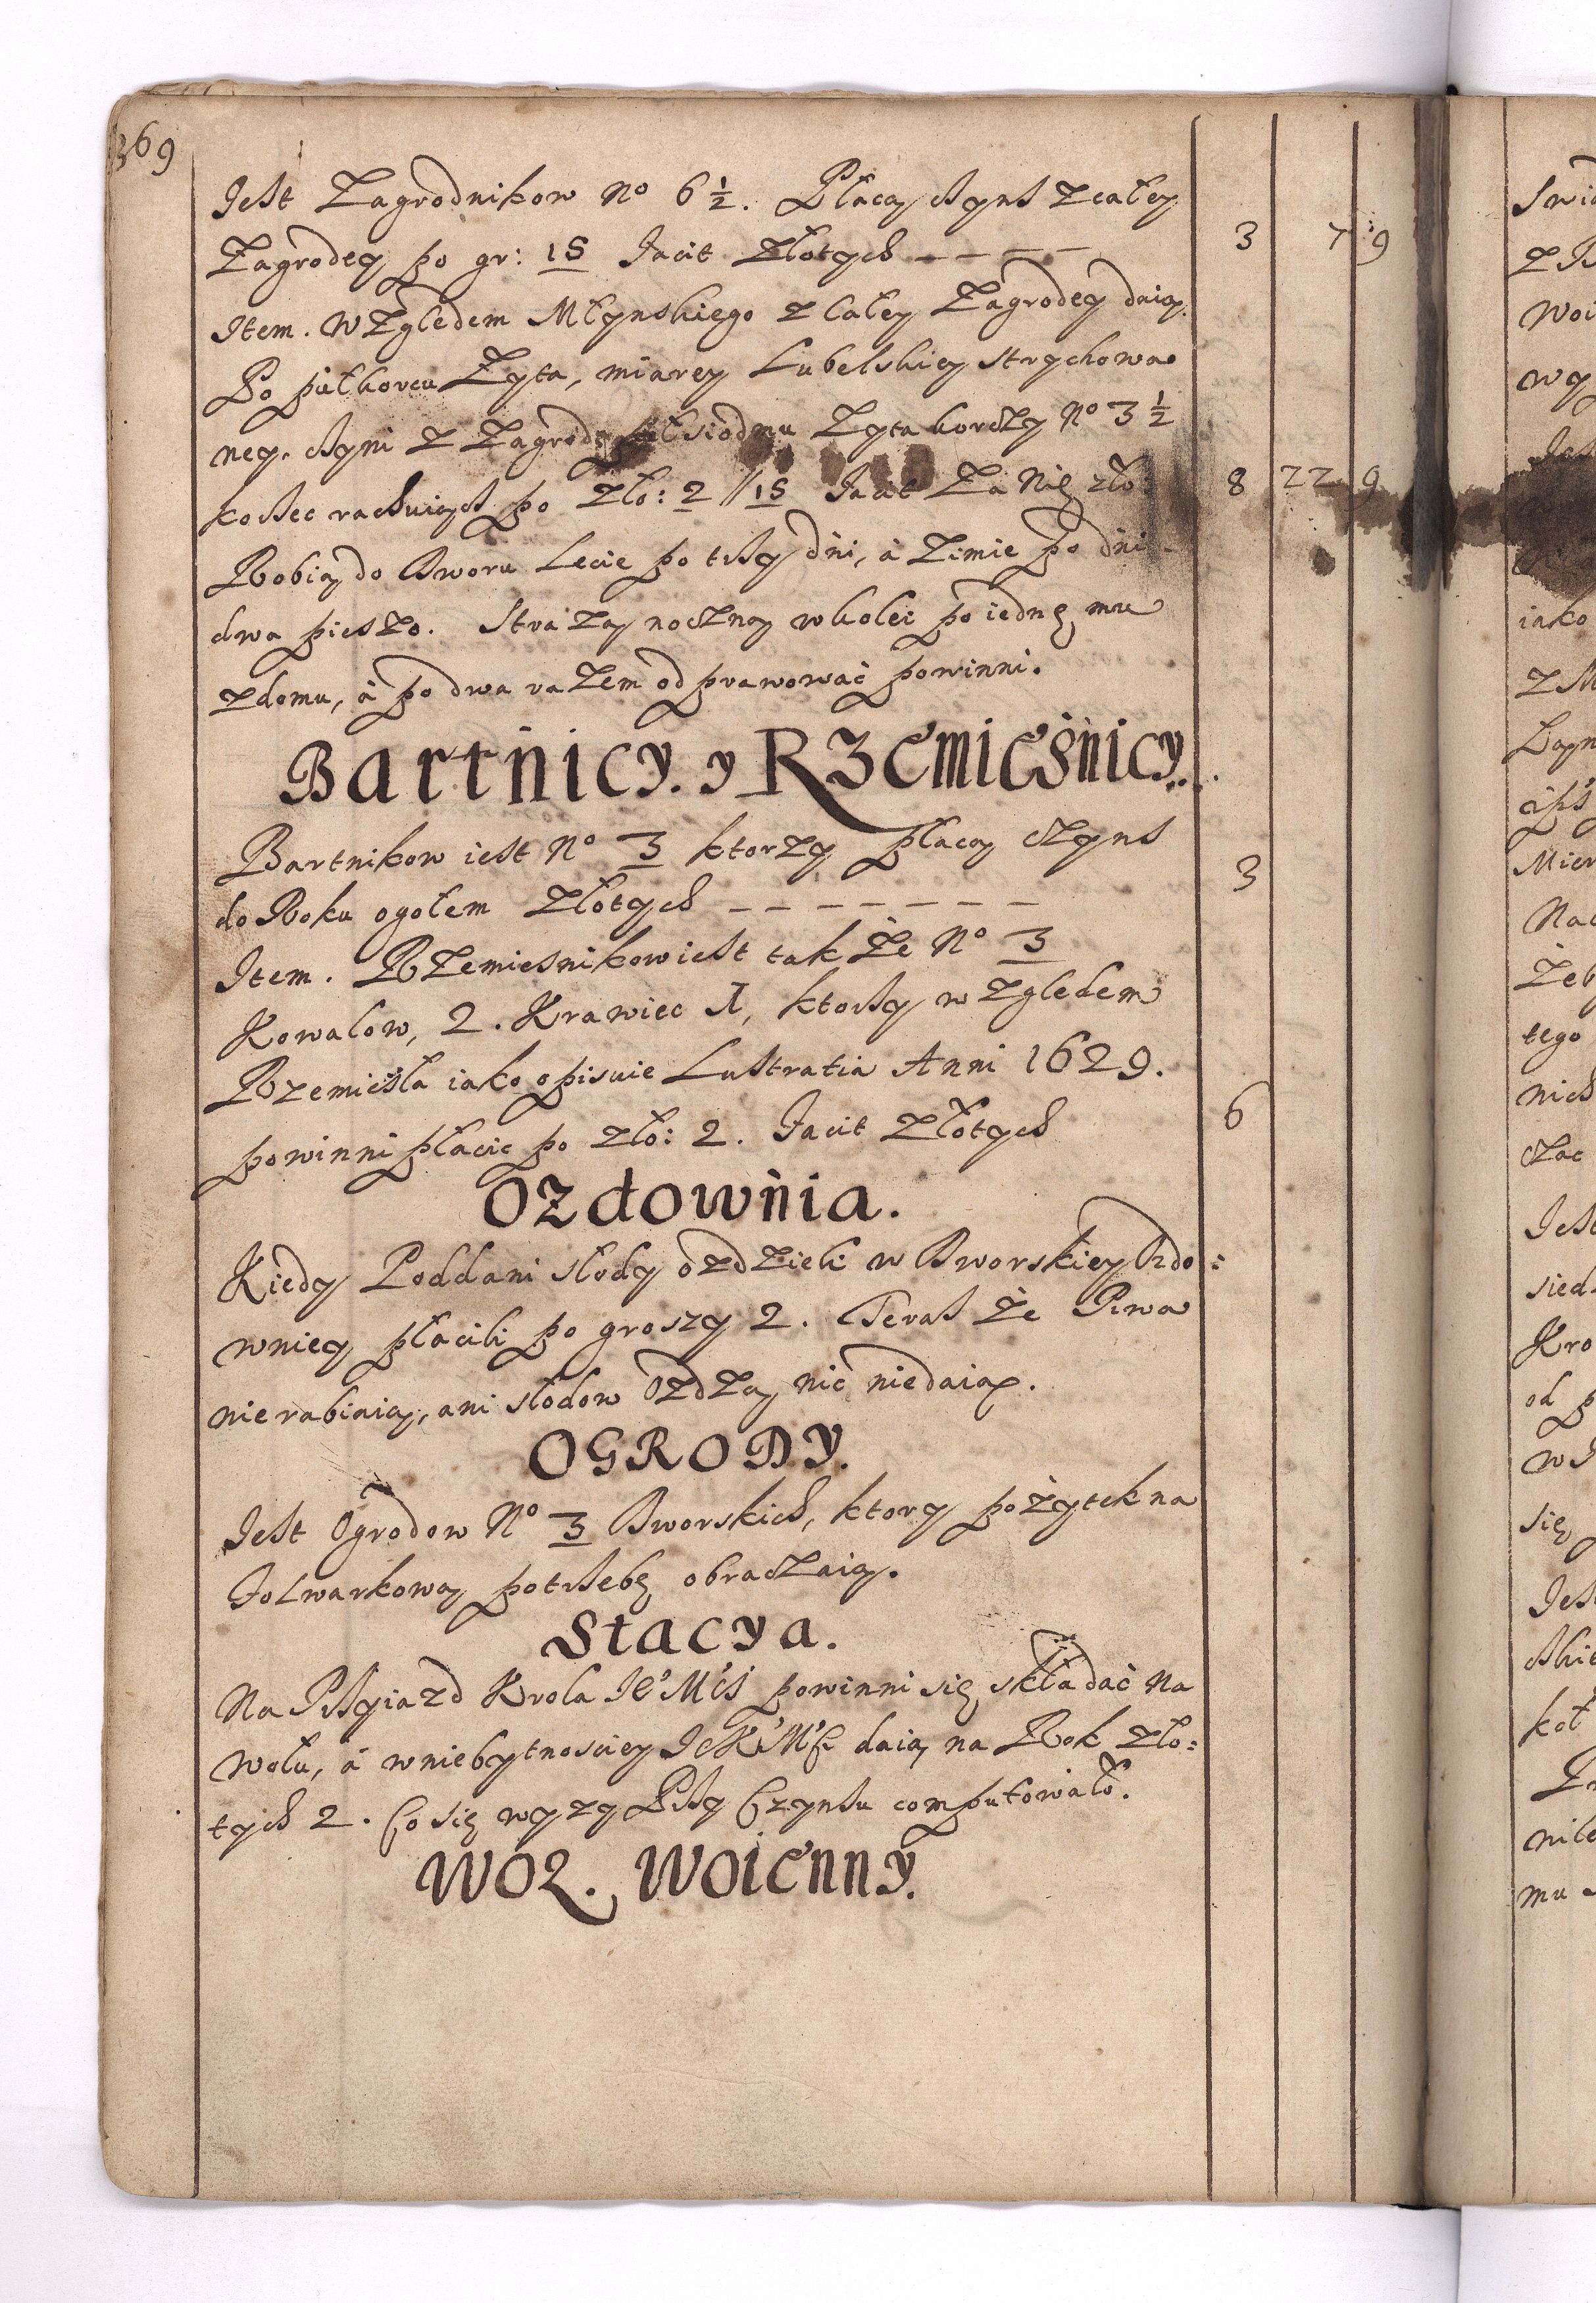 369
Jest Zagrodnikow No 6 ½. Płacą czynsz z całey
Zagrodey po gr: 15 Facit Złotych — — — — 3 7 9
Item. Względem Młynskiego z Całey Zagrodey daią
Po pułkorcu Zyta, miarey Lubelskiey strychowa=
ney. Czyni z Zagrod siodmu Zyta korczy No 3 ½
koszec rachuiąc po Zło: 2 // 15 Facit Za Nię zło: 8 22 9
Robią do Dworu Lecie po trzy dni, á Zimie po dni
dwa pieszo. Strażą nocżną w kolei po iednę mu
z domu, á po dwa razem odprawować powinni.
Bartnicy. y Rzemieśnicy.
Bartnikow iest No 3 ktorzy płacą czynsz
do Roku ogołem Złotych — — — — — — — 3
Item. Rzemiesnikow iest także No 3
Kowalow, 2. Krawiec 1, ktorzy względem
Rzemiesła iako opisuie Lustratia Anni 1629.
powinni płacic po zło: 2. Facit Złotych 6
Ozdownia.
Kiedy Poddani słody ozdzieli w Dworskiey Ozdo=
wniey płacili po groszy 2. Teraz że Piwa
nie rabiaią, ani słodow Ozdzą nic niedaią.
OGRODY.
Jest Ogrodow No 3 Dworskich, ktory pożytek na
Folwarkową potrzebę obraczaią.
Stacya.
Na Przyiazd Krola Je'Mći powinni się składać na
wołu, á w niebytnosciey JeK'M'ści daią na Rok zło=
tych 2. Co się wyzy Przy Czynszu computowało.
Woz. Woienny.